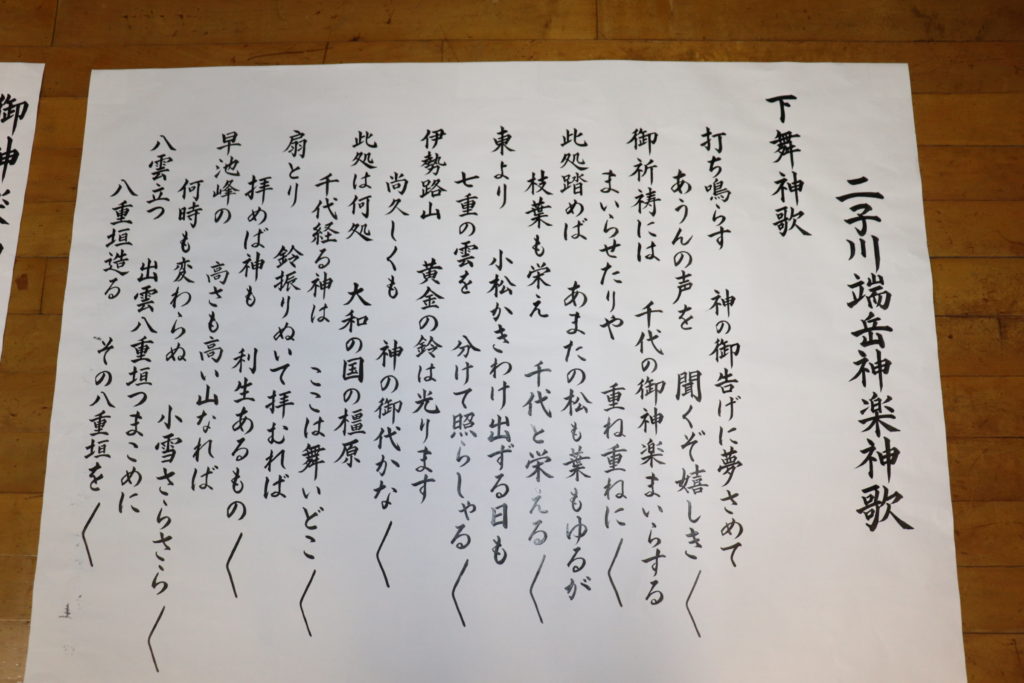 二子川端岳神楽神歌
下舞神歌
打ち鳴らす 神の御告げに夢さめて
あうんの声を 聞くぞ嬉しき〱
御祈祷には 千代の御神楽まいらする
まいらせたりや 重ね重ねに〱
此処踏めば あまたの松も葉もゆるが
枝葉も栄え 千代と栄える〱
東より 小松かきわけ出ずる日も
七重の雲を 分けて照らしゃる〱
伊勢路山 黄金の鈴は光ります
尚久しくも 神の御代かな〱
此処は何処 大和の国の橿原
千代経る神は ここは舞いどこ〱
扇とり 鈴振りぬいて拝むれば
拝めば神も 利生あるもの〱
早池峰の 高さも高い山なれば
何時も変わらぬ 小雪さらさら〱
八雲立つ 出雲八重垣つまこめに
八重垣造る その八重垣を〱
御神楽